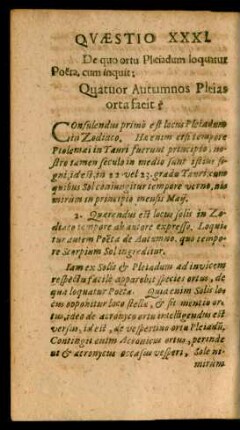 QVÆSTIO XXXI.
De quo ortu Pleiadum loquitur
Poëta, cum inquit;
Quatuor Autumnos Pleias
orta facit?
Consulendus primò est locus Pleiadum
in Zodiaco, Hæ enim etsi tempore
Ptolemæi in Tauri fuerunt principio: no-
stro tamen seculo in medio sunt istius si-
gni, id est, in 22. vel 23. gradu Tauri: cum
quibus Sol coniungitur tempore verno, ni-
mirum in principio mensis Maij.
2. Quærendus est locus solis in Zo-
diaco tempore ab autore expresso, Loqui-
tur autem Poëta de Autumno, quo tempo-
re Scorpium Sol ingreditur.
Iam ex Solis & Pleiadum ad invicem
respectu facilè apparebit species ortus, de
qua loquatur Poeta. Quia enim Solis lo-
cus opponitur loco stellæ, & fit mentio or-
tus, ideo de acronyco ortu intelligendus est
versus, id est, de vespertino ortu Pleiadũ,
Contingit enim Acronicus ortus, perinde
ut & acronycus occasus vesperi, Sole ni-
mirum